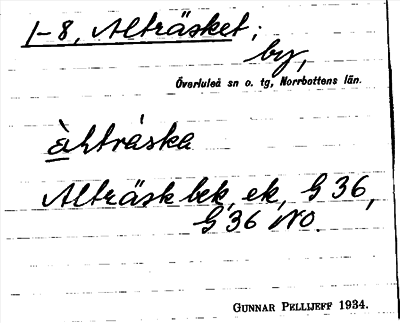 1-8, Alträsket;
by,
Överluleå sn o. tg, Norrbottens län.
àltràska
Alträsk bek, ek, G 36,
G 36 NO.
GUNNAR PELLIJEFF 1934.